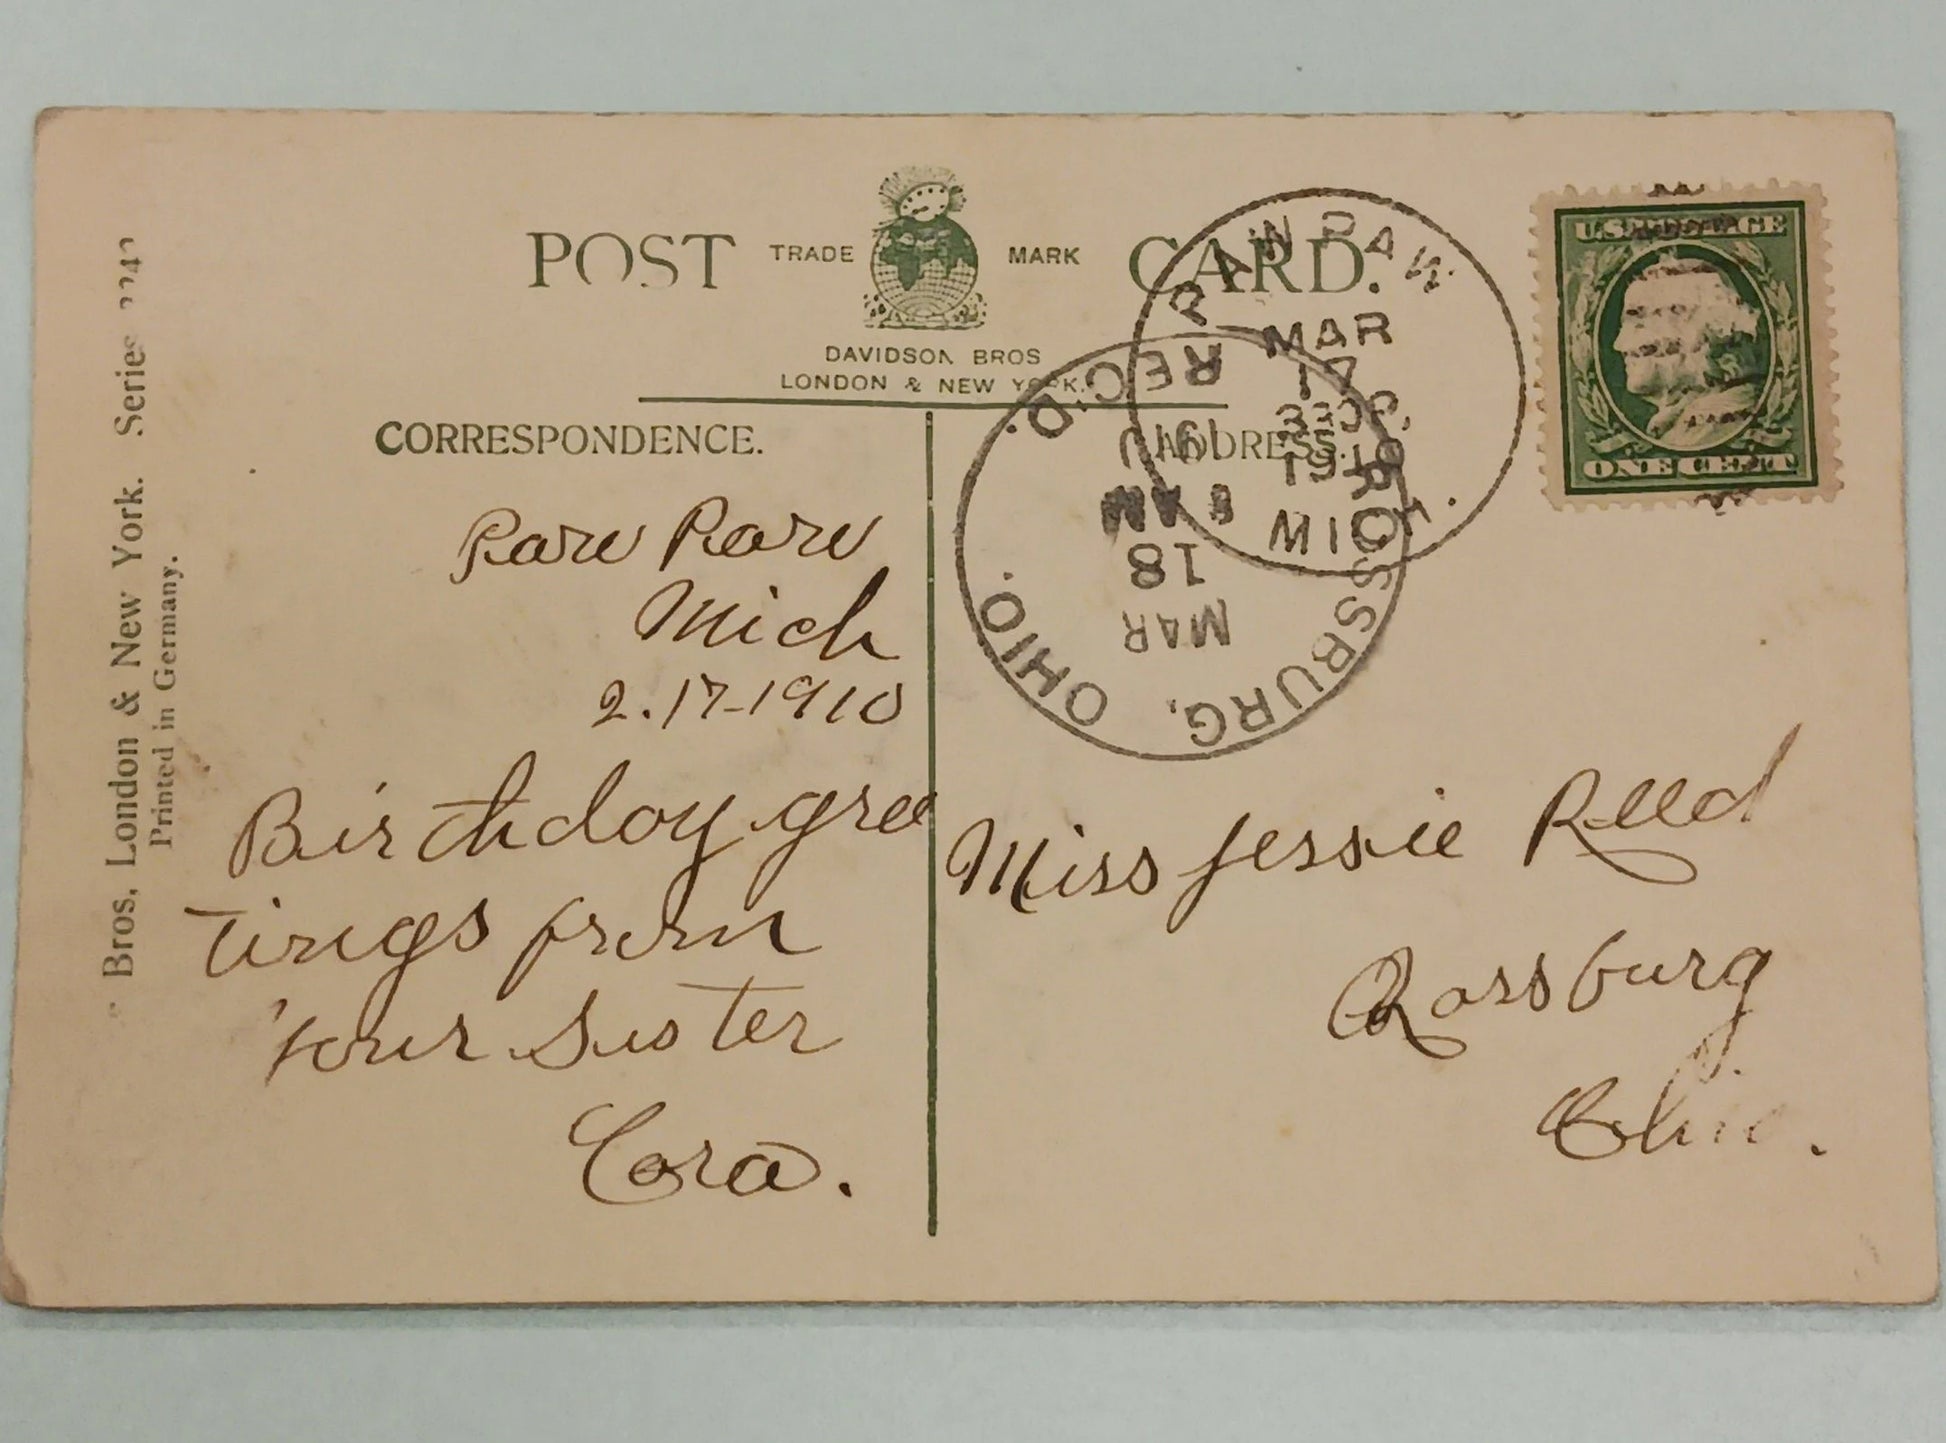 POST CARD.
TRADE MARK
DAVIDSON BROS
LONDON & NEW YORK.
CORRESPONDENCE.
ADDRESS.
Bros, London & New York. Series
Printed in Germany.
PAW PAW
MAR
17
1910
MICH.
REC'D.
1910
8 AM
18
MAR
ROSSBURG, OHIO.
U.S. POSTAGE
ONE CENT
Paw Paw
Mich
2.17-1910
Birthday gree
tings from
Your Sister
Cora.
Miss Jessie Reed
Rossburg
Ohio.